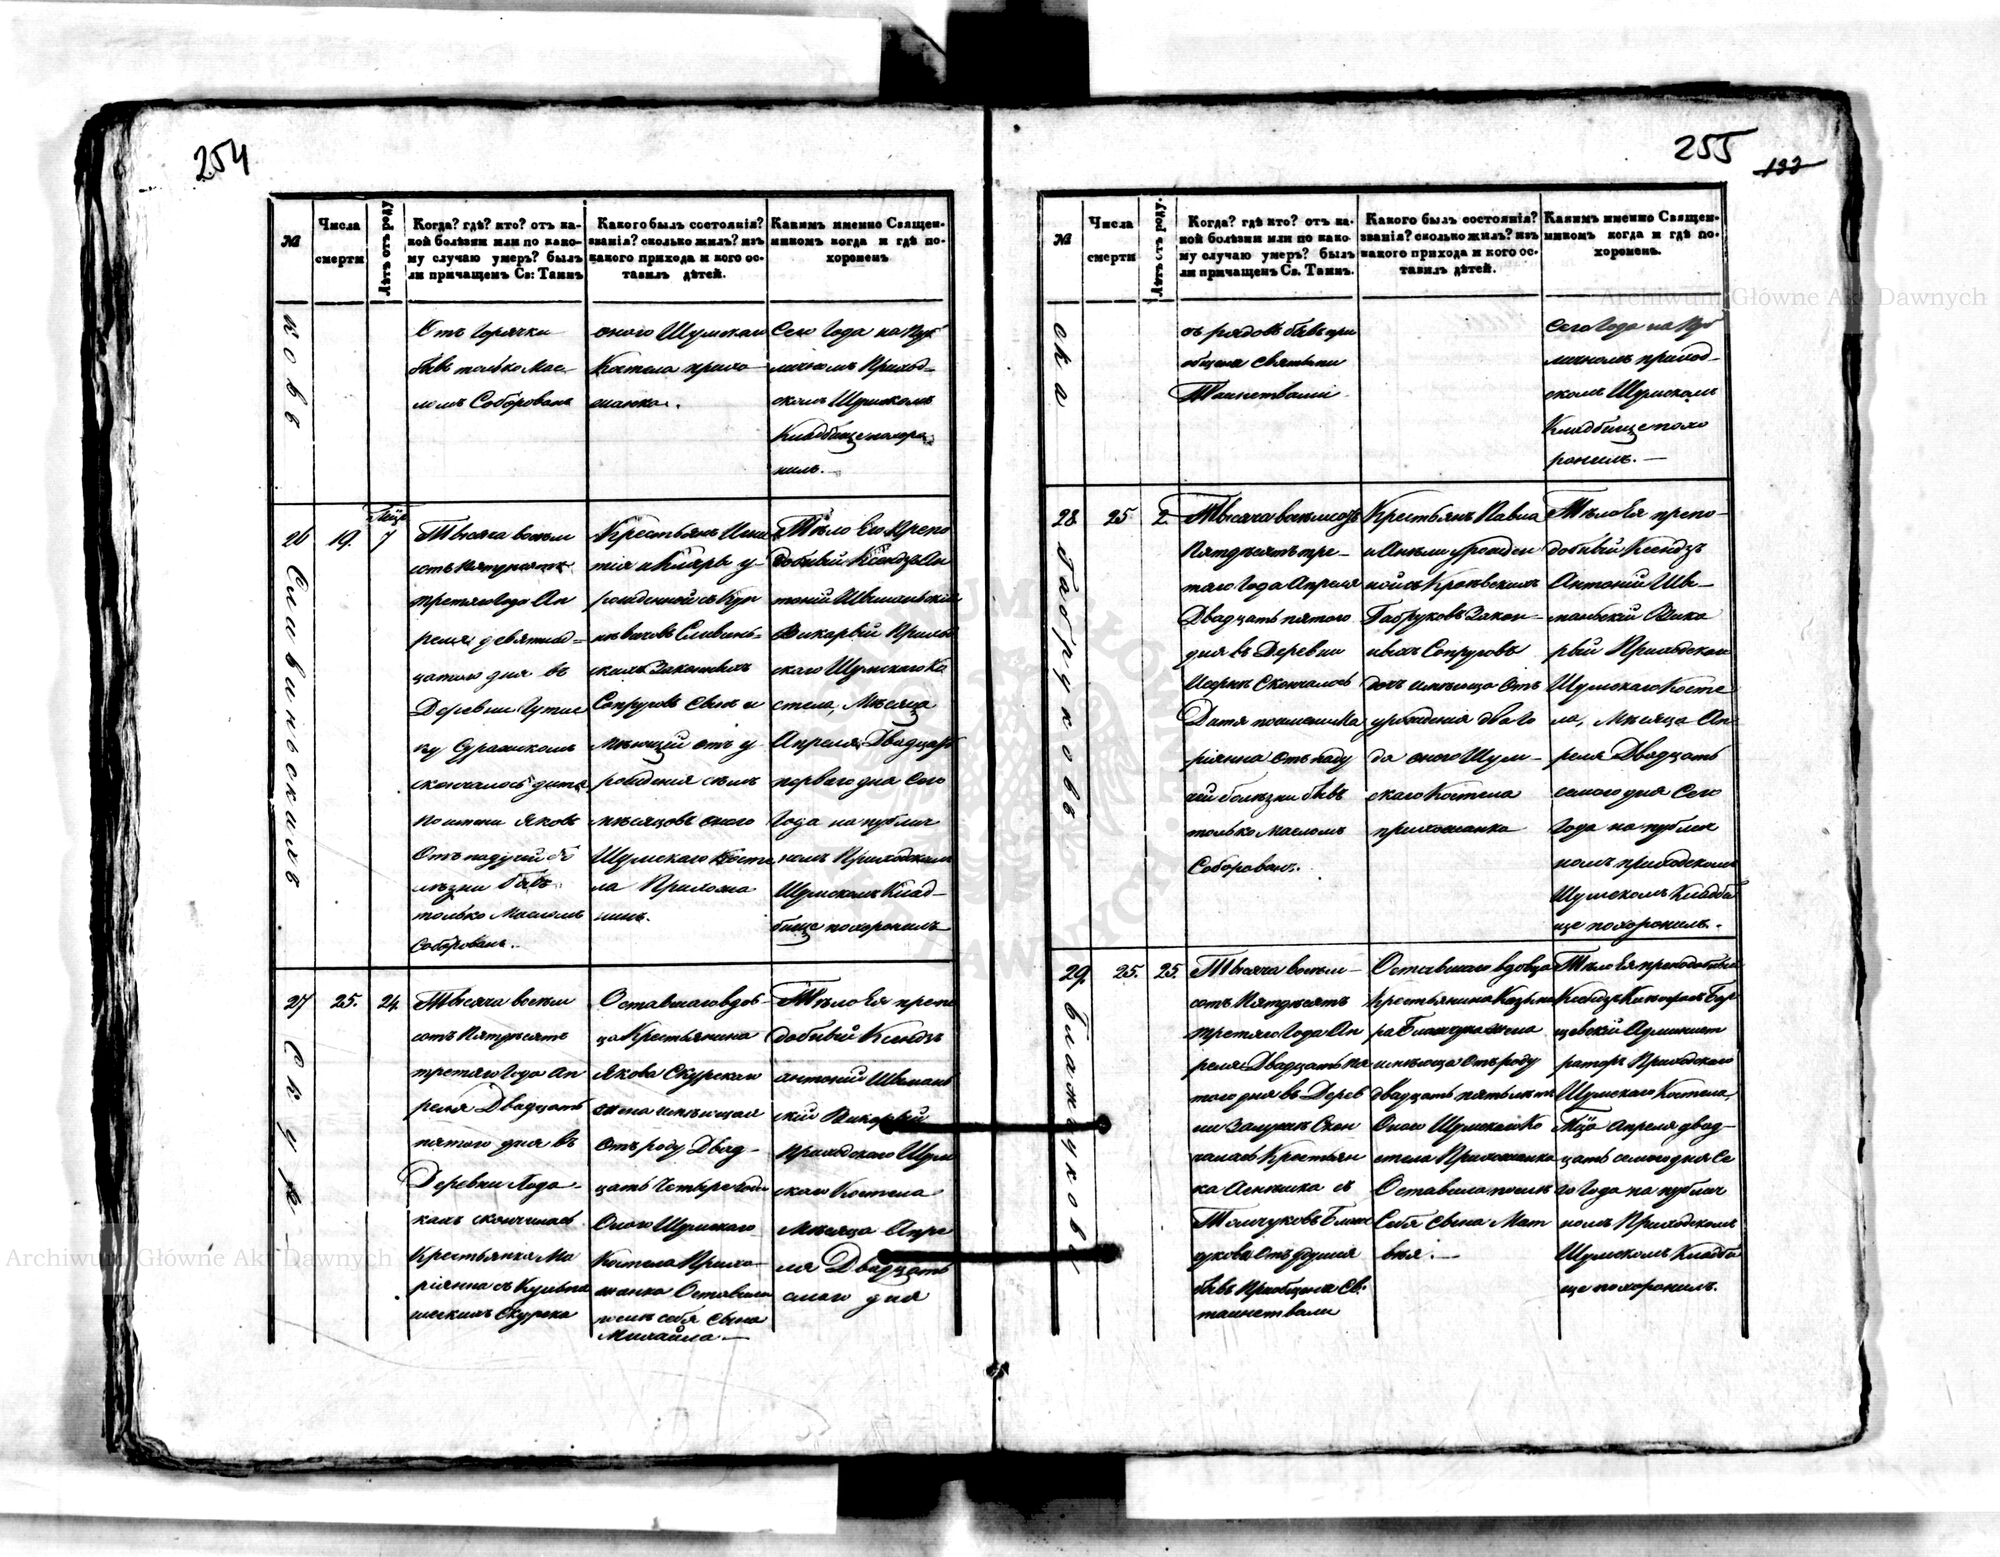 254
№
Числа
смерти
Лѣтъ отъ роду
Когда? гдѣ? кто? отъ ка-
кой болѣзни или по како-
му случаю умеръ? былъ
ли причащенъ Св: Таинъ
Какого былъ состоянія?
званія? сколько жилъ? изъ
какого прихода и кого ос-
тавилъ дѣтей.
Какимъ именно Священ-
никомъ когда и гдѣ по-
хороненъ
ковъ
Отъ горячки
бывъ только Мас-
ломъ Соборованъ
оного Шумскаго
Костела прихо
жанка.
Сего Года на Пуб
личномъ Приход-
скомъ Шумскомъ
Кладбище похоро
нилъ.
26
19.
7
Сливинскихъ
Тысяча восьм
сотъ Пятдесятъ
третяго Года Ап
реля девятнад-
цатого дня въ
Деревни
скончалось дитя
по имени Яковъ
Отъ падучей бо
лѣзни бывъ
только Масломъ
Соборованъ.
Крестьянъ Игна
тія и Клары у-
рожденной съ
Сливинь-
скихъ Законныхъ
Супруговъ Сынъ и
мѣющій отъ у-
рожденія семь
мѣсяцовъ оного
Шумскаго Косте
ла Прихожа
нинъ.
Тѣло Его Препо
добный Ксендзъ Ан
тоній Шиманьскій
Викарый Приход
скаго Шумскаго Ко
стела, Мѣсяца
Апреля Двадцать
первого дня Сего
Года на публич
номъ Приходскомъ
Шумскомъ Клад-
бище похоронилъ
27
25.
24.
Скур
Тысяча восьм
сотъ Пятдесятъ
третяго Года Ап
реля Двадцать
пятого дня въ
Деревни
скончилась
Крестьянка Ма
ріянна съ
Скурска
Оставшаго вдов-
ца Крестьянина
Якова Скурскаго
жена имѣющая
Отъ роду Двад-
цать Четыре года
Оного Шумскаго
Костела Прихо-
жанка Оставила
после себя Сына
Михайла.—
Тѣло Ея препо
добный Ксендзъ
Антоній Шимань
скій Викарый
Приходскаго Шум
скаго Костела
Мѣсяца Апре
ля Двадцать
дня
255
132
№
Числа
смерти
Лѣтъ отъ роду.
Когда? гдѣ кто? отъ ка-
кой болѣзни или по како-
му случаю умеръ? былъ
ли причащенъ Св. Таинъ.
Какого былъ состоянія?
званія? сколько жилъ? изъ
какого прихода и кого ос-
тавилъ дѣтей.
Какимъ именно Священ-
никомъ когда и гдѣ по-
хороненъ.
ска
съ родовъ бывъ при
общена Святыми
Таинствами
Сего Года на Пуб
личномъ приход-
скомъ Шумскомъ
Кладбище похо
ронилъ.—
28
25
2.
Габруковъ
Тысяча восьмсотъ
Пятдесятъ тре-
тяго Года Апреля
Двадцать пятого
дня въ Деревни
Скончалось
Дитя по имени Ма
ріянна Отъ паду
чей болѣзни бывъ
только масломъ
Соборован.
Крестьянъ Павла
и Анели урожден
ной съ
Габруковъ Закон-
ныхъ Супруговъ
дочь имѣюща Отъ
урожденія два Го
да оного Шум-
скаго Костела
прихожанка
Тѣло Ея препо-
добный Ксендзъ
Антоній Ши-
маньскій Вика
рый Приходскаго
Шумскаго Косте
ла, Мѣсяца Ап
реля Двадцать
семого дня Сего
Года на публич
номъ приходскомъ
Шумскомъ Кладби
ще похоронилъ.
29.
25.
25
Блажчуковы
Тысяча восьм-
сотъ Пятдесятъ
третяго Года Ап
реля Двадцать пя
того дня въ Дерев
ни Скон
чалась Крестьян
ка Агнешка съ
Блаж
чукова Отъ
бывъ Приобщена Св:
таинствами
Оставшаго вдовца
Крестьянина Казьми
ра Блажчука жена
имѣюща Отъ роду
двадцать пять лѣтъ
Оного Шумскаго Ко
стела Прихожанка
Оставила после
Себя Сына Мат
вѣя.—
Тѣло Ея преподобный
Ксендзъ
Админист
раторъ Приходскаго
Шумскаго Костела,
Апреля двад-
цать семого дня Се
го Года на публич
номъ Приходскомъ
Шумскомъ Кладби
ще похоронилъ.
Archiwum Główne Akt Dawnych
Archiwum Główne Akt Dawnych